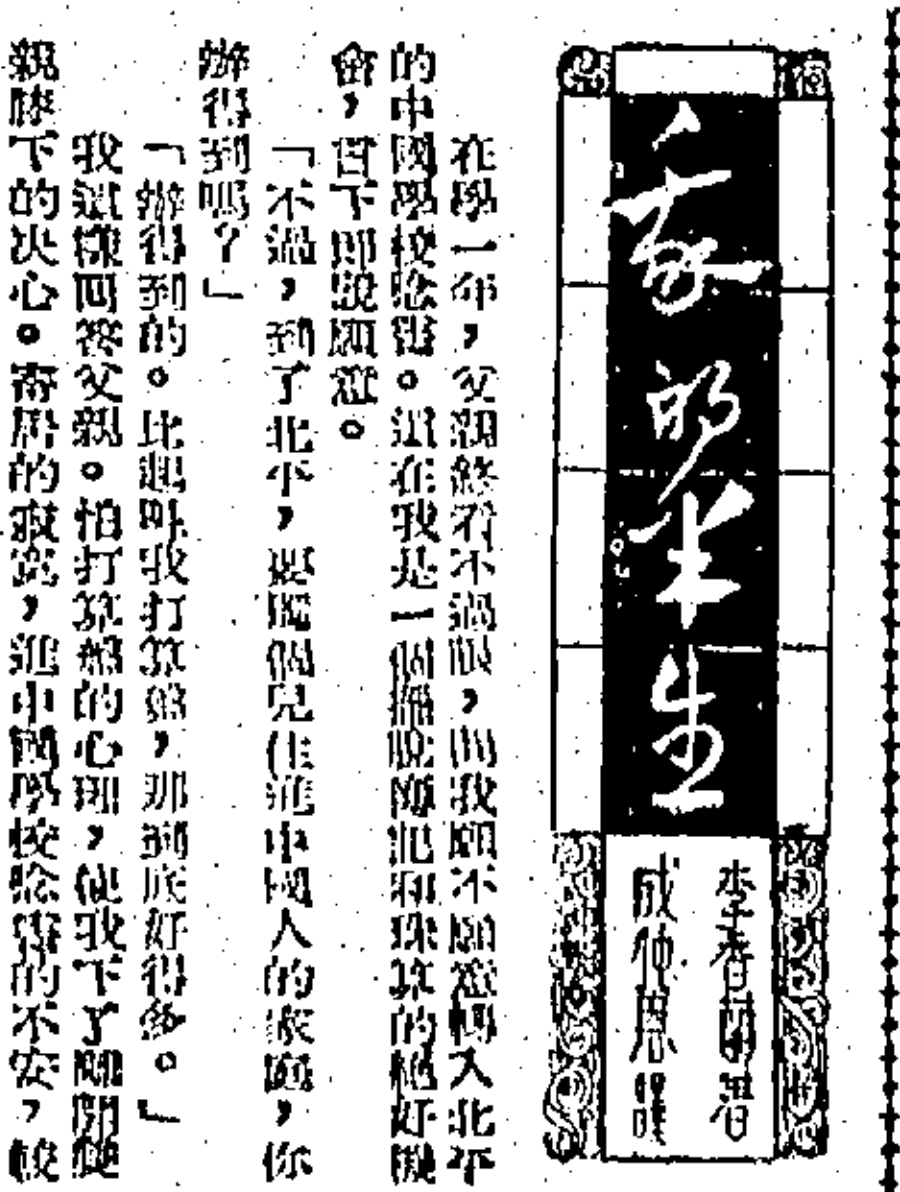 我的半生
李香蘭著
成仲恩譯
在學一年，父親終看不過眼，問我願不願意轉入北平
的中國學校唸書。這在我是一個擺脫簿記和珠算的絕好機
會，當下即說願意。
「不過，到了北平，要獨個兒住進中國人的家庭，你
辦得到嗎？」
「辦得到的。比起叫我打算盤，那到底好得多。」
我這樣回答父親。怕打算盤的心理，使我下了離開雙
親膝下的决心。寄居的寂寞，進中國學校唸書的不安，較